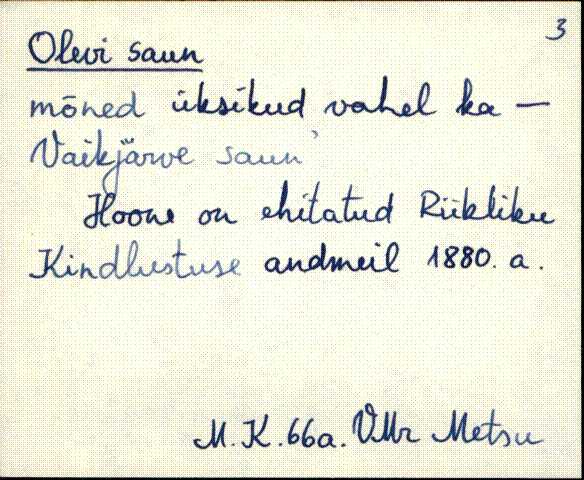 3
Olevi saun
mõned üksikud vahel ka —
Vaikjärve saun'
Hoone on ehitatud Riikliku
Kindlustuse andmeil 1880. a.
M. K. 66a. VMr Metsu